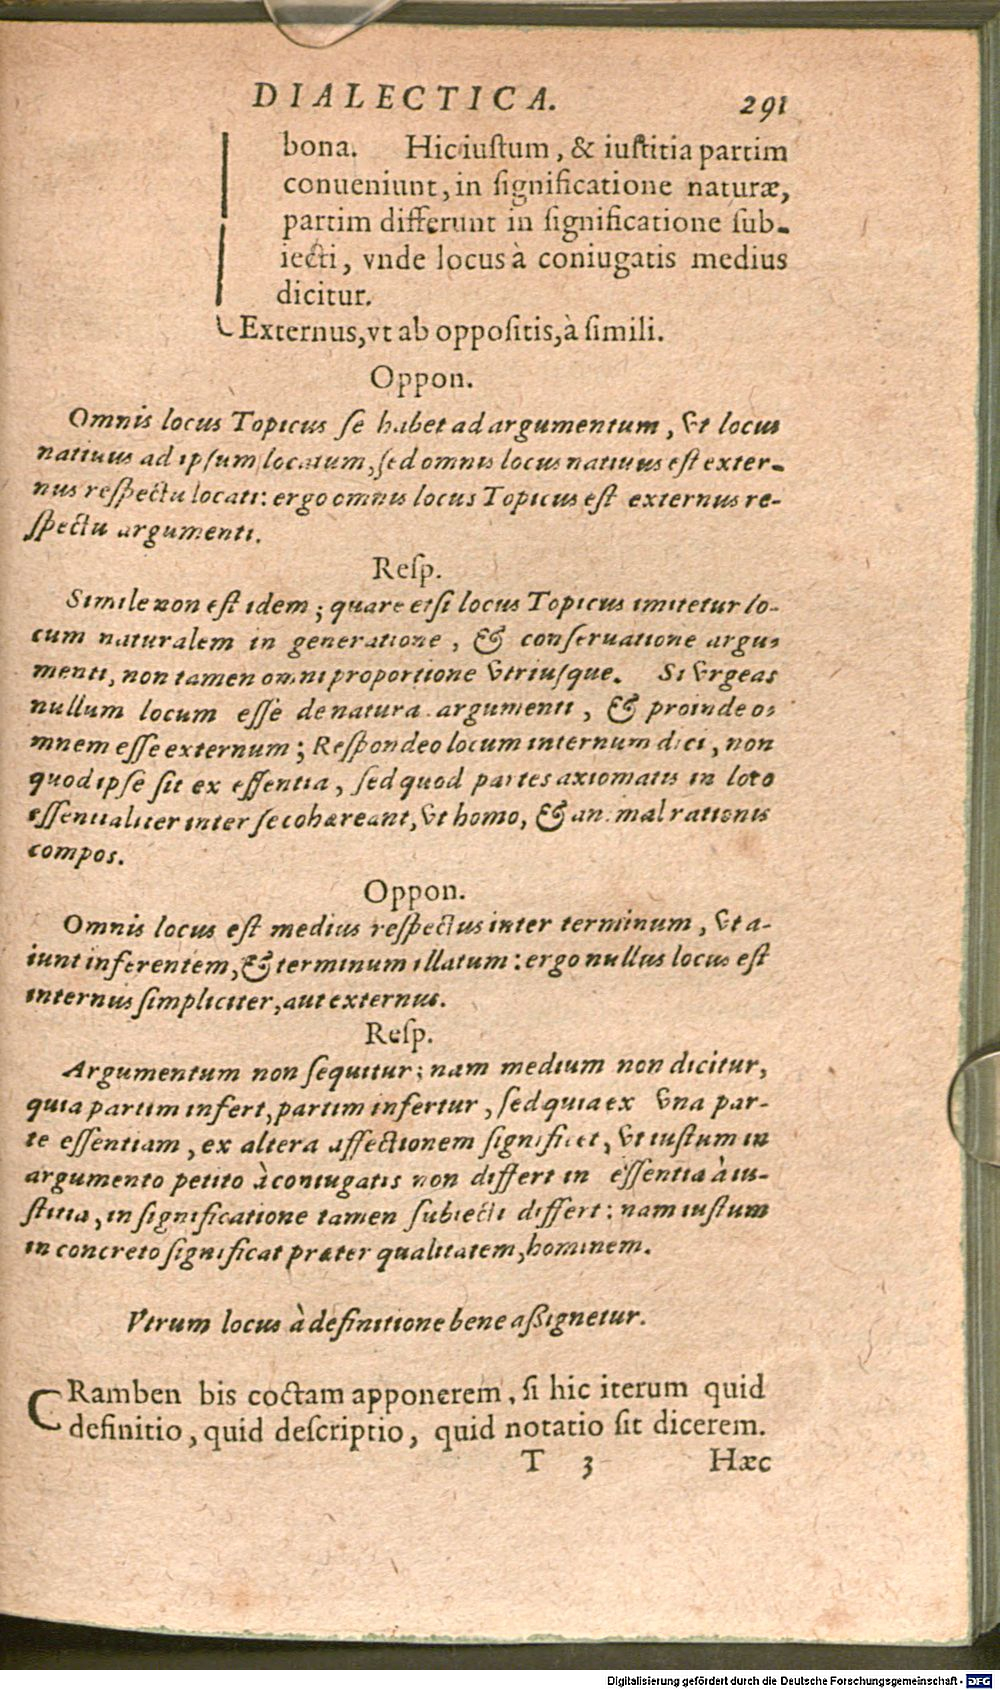 DIALECTICA. 291
bona. Hic iustum, & iustitia partim
conueniunt, in significatione naturæ,
partim differunt in significatione sub-
iecti, vnde locus à coniugatis medius
dicitur.
Externus, vt ab oppositis, à simili.
Oppon.
Omnis locus Topicus se habet ad argumentum, vt locus
natiuus ad ipsum locatum, sed omnis locus natiuus est exter-
nus respectu locati: ergo omnis locus Topicus est externus re-
spectu argumenti.
Resp.
Simile non est idem; quare etsi locus Topicus imitetur lo-
cum naturalem in generatione, & conseruatione argu-
menti, non tamen omni proportione vtriusque. Si vrgeas
nullum locum esse de natura argumenti, & proinde o-
mnem esse externum; Respondeo locum internum dici, non
quod ipse sit ex essentia, sed quod partes axiomatis in loto
essentialiter inter se cohæreant, vt homo, & animal rationis
compos.
Oppon.
Omnis locus est medius respectus inter terminum, vt a-
iunt inferentem, & terminum illatum: ergo nullus locus est
internus simpliciter, aut externus.
Resp.
Argumentum non sequitur; nam medium non dicitur,
quia partim infert, partim infertur, sed quia ex vna par-
te essentiam, ex altera affectionem significet, vt iustum in
argumento petito à coniugatis non differt in essentia à iu-
stitia, in significatione tamen subiecti differt: nam iustum
in concreto significat præter qualitatem, hominem.
Vtrum locus à definitione bene assignetur.
CRamben bis coctam apponerem, si hic iterum quid
definitio, quid descriptio, quid notatio sit dicerem.
T 3 Hæc
Digitalisierung gefördert durch die Deutsche Forschungsgemeinschaft - DFG